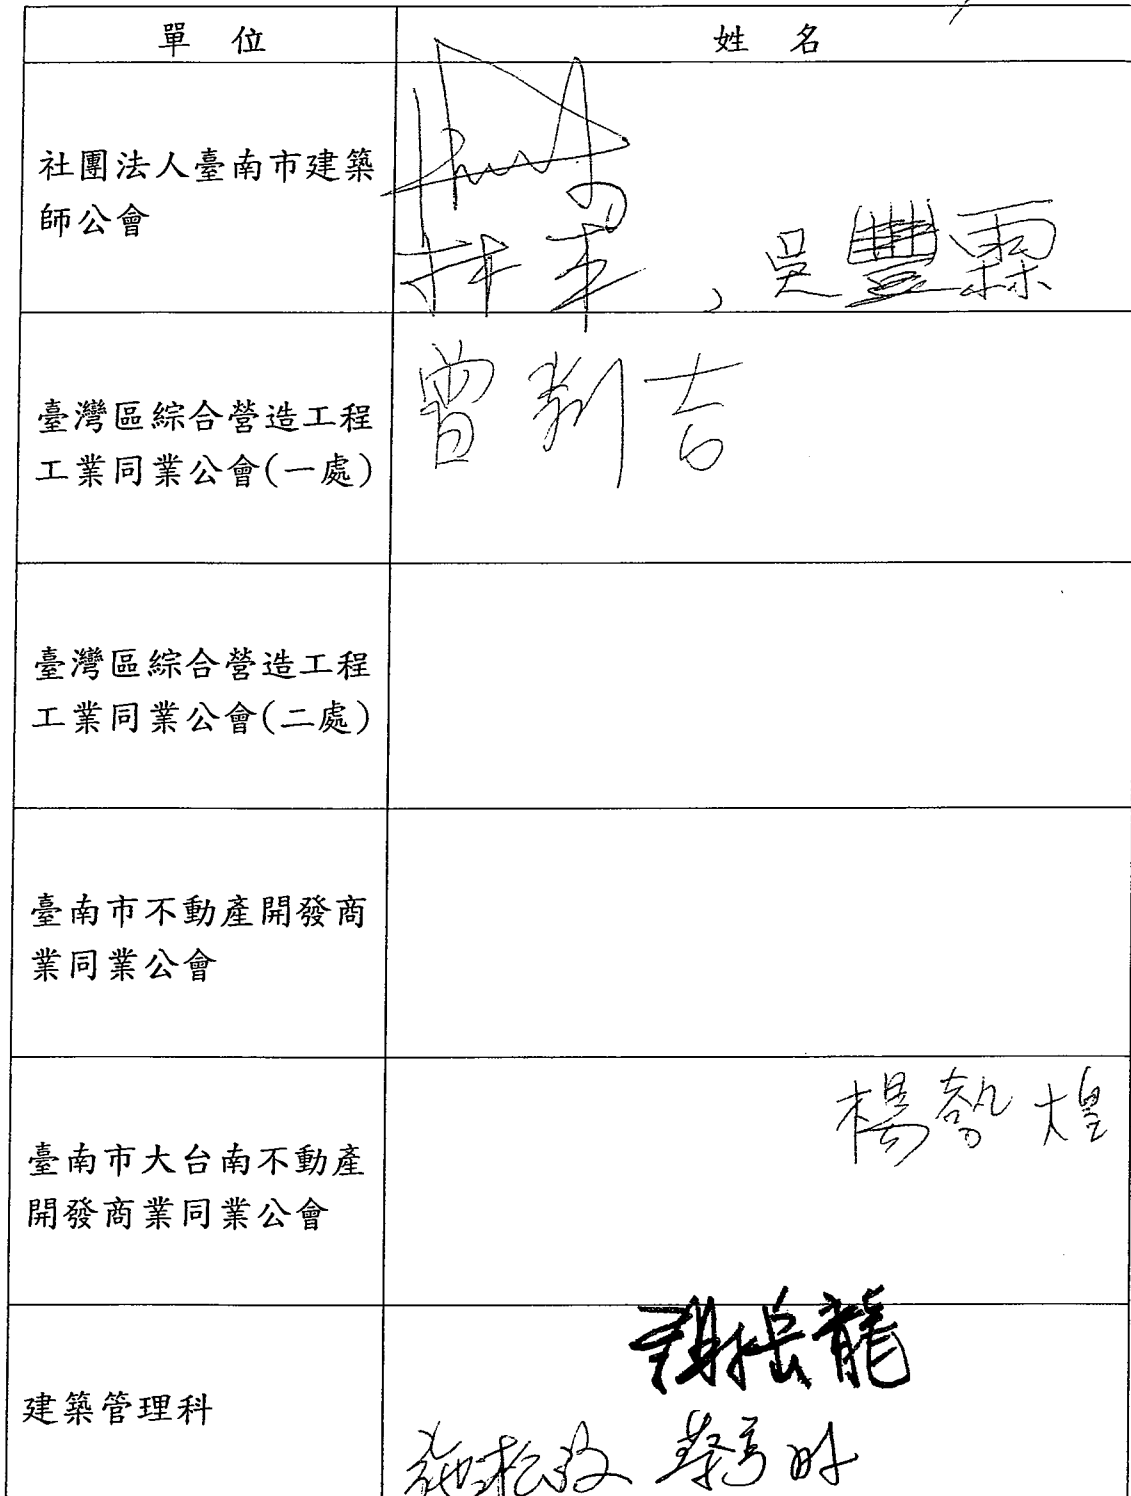 單 位 姓 名
社團法人臺南市建築
師公會
吳豐霖
臺灣區綜合營造工程
工業同業公會(一處)
曾 吉
臺灣區綜合營造工程
工業同業公會(二處)
臺南市不動產開發商
業同業公會
臺南市大台南不動產
開發商業同業公會
楊 煌
建築管理科
謝岳龍